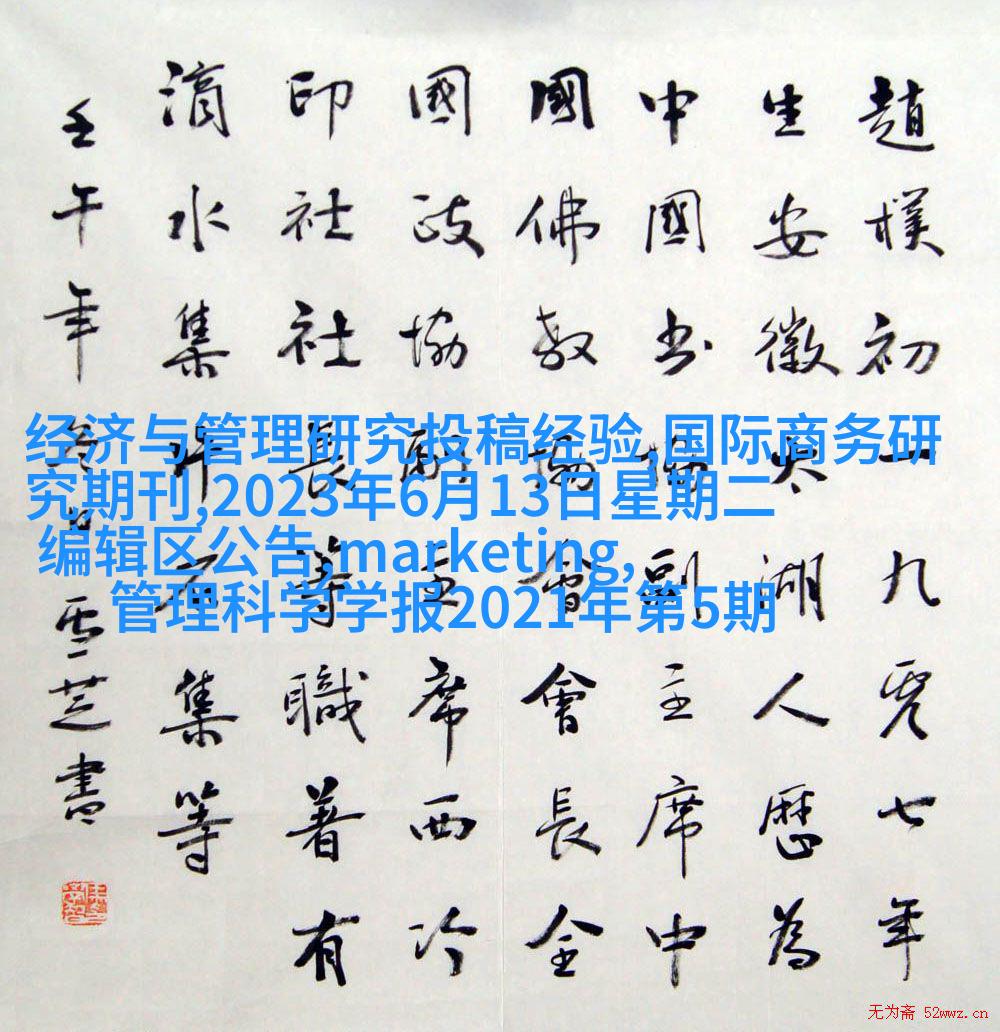 趙樸初一九零七年
生安徽太湖人歷為
中國书協副主席中
國佛教協會會長全
國政協副主席西冷
印社社長等職著有
滴水集片石集等
壬午年冬日雪芝書
经济与管理研究投稿经验,国际商务研
究期刊,2023年6月13日星期二
编辑区公告, marketing,
管理科学学报2021年第5期
无为斋 52wwz.cn